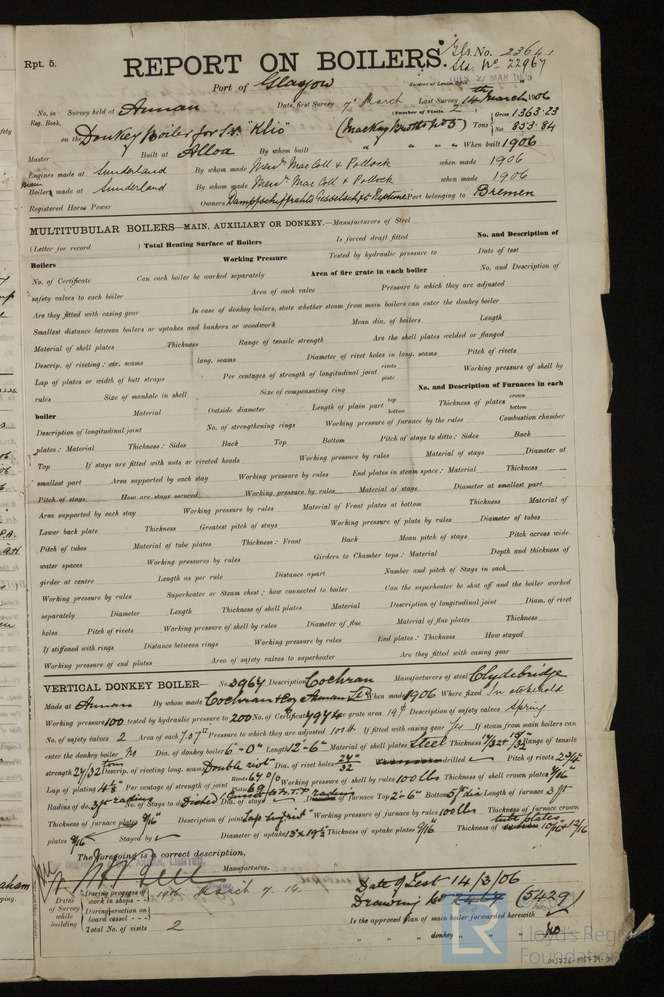 Rpt. 5.
REPORT ON BOILERS.
Gls. No. 23641
Sld. No 22967
TUES. 27 MAR 1906
Port of Glasgow
No. in Survey held at Annan Date, first Survey 7th March Last Survey 14th March 1906
Reg. Book. (Number of Visits 2)
on the Donkey Boiler for S.S. "Klio" (Mackay Bros No 5) Tons Gross 1363.23 Net 853.84
Master Built at Alloa By whom built When built 1906
Engines made at Sunderland By whom made Messrs MacColl & Pollock when made 1906
Main Boilers made at Sunderland By whom made Messrs MacColl & Pollock when made 1906
Registered Horse Power Owners Dampfschifffahrts Gesellschaft Neptune Port belonging to Bremen
MULTITUBULAR BOILERS—MAIN, AUXILIARY OR DONKEY.—Manufacturers of Steel
(Letter for record ) Total Heating Surface of Boilers Is forced draft fitted No. and Description of
Boilers Working Pressure Tested by hydraulic pressure to Date of test
No. of Certificate Can each boiler be worked separately Area of fire grate in each boiler No. and Description of
safety valves to each boiler Area of each valve Pressure to which they are adjusted
Are they fitted with easing gear In case of donkey boilers, state whether steam from main boilers can enter the donkey boiler
Smallest distance between boilers or uptakes and bunkers or woodwork Mean dia. of boilers Length
Material of shell plates Thickness Range of tensile strength Are the shell plates welded or flanged
Descrip. of riveting: cir. seams long. seams Diameter of rivet holes in long. seams Pitch of rivets
Lap of plates or width of butt straps Per centages of strength of longitudinal joint rivets plate Working pressure of shell by
rules Size of manhole in shell Size of compensating ring No. and Description of Furnaces in each
boiler Material Outside diameter Length of plain part top bottom Thickness of plates crown bottom
Description of longitudinal joint No. of strengthening rings Working pressure of furnace by the rules Combustion chamber
plates: Material Thickness: Sides Back Top Bottom Pitch of stays to ditto: Sides Back
Top If stays are fitted with nuts or riveted heads Working pressure by rules Material of stays Diameter at
smallest part Area supported by each stay Working pressure by rules End plates in steam space: Material Thickness
Pitch of stays How are stays secured Working pressure by rules Material of stays Diameter at smallest part
Area supported by each stay Working pressure by rules Material of Front plates at bottom Thickness Material of
Lower back plate Thickness Greatest pitch of stays Working pressure of plate by rules Diameter of tubes
Pitch of tubes Material of tube plates Thickness: Front Back Mean pitch of stays Pitch across wide
water spaces Working pressures by rules Girders to Chamber tops: Material Depth and thickness of
girder at centre Length as per rule Distance apart Number and pitch of Stays in each
Working pressure by rules Superheater or Steam chest; how connected to boiler Can the superheater be shut off and the boiler worked
separately Diameter Length Thickness of shell plates Material Description of longitudinal joint Diam. of rivet
holes Pitch of rivets Working pressure of shell by rules Diameter of flue Material of flue plates Thickness
If stiffened with rings Distance between rings Working pressure by rules End plates: Thickness How stayed
Working pressure of end plates Area of safety valves to superheater Are they fitted with easing gear
VERTICAL DONKEY BOILER— No. 3967 Description Cochran Manufacturers of steel Clydebridge
Made at Annan By whom made Cochran & Coy Annan Ltd When made 1906 Where fixed in stokehold
Working pressure 100 tested by hydraulic pressure to 200 No. of Certificate 7974 Fire grate area 19 Description of safety valves Spring
No. of safety valves 2 Area of each 7.07 Pressure to which they are adjusted If fitted with easing gear yes If steam from main boilers can
enter the donkey boiler No Dia. of donkey boiler 6'-0" Length 12'-6" Material of shell plates Steel Thickness Range of tensile
strength 27/32 tons Descrip. of riveting long. seams Double rivt Dia. of rivet holes drilled Pitch of rivets 2 3/4"
Lap of plating 4 1/8" Per centage of strength of joint Rivets 67 0/0 Plates 69 Working pressure of shell by rules 100 lbs Thickness of shell crown plates 9/16"
Radius of do. 3 ft radius No. of Stays to do. Dished Dia. of stays Diameter of furnace Top 2'-6" Bottom Length of furnace
Thickness of furnace plates 9/16" Description of joint Lap Working pressure of furnace by rules 100 lbs Thickness of furnace crown
plates 9/16" Stayed by Diameter of uptake Thickness of uptake plates 9/16" Thickness of tube plates
The foregoing is a correct description,
Manufacturer.
Dates of Survey while building
During progress of work in shops - - 1906 March 7. 14.
During erection on board vessel - -
Total No. of visits 2
Date of Test 14/3/06
Drawing No (5429)
Is the approved plan of main boiler forwarded herewith
" " " donkey " " " No
LR Lloyd's Register Foundation